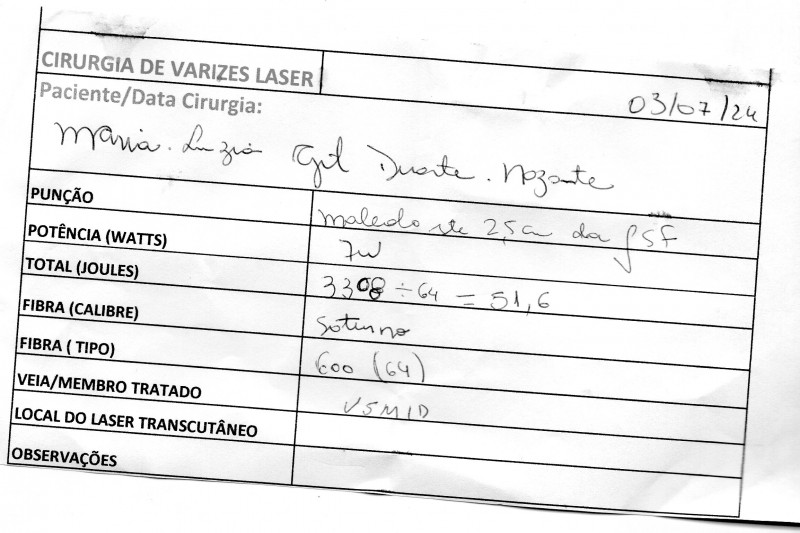 CIRURGIA DE VARIZES LASER
Paciente/Data Cirurgia: 03/07/24
Maria. Luzia Gil Duarte.
PUNÇÃO maleolo ate 2,5cm da JSF
POTÊNCIA (WATTS) 7W
TOTAL (JOULES) 3308 ÷ 64 = 51,6
FIBRA (CALIBRE)
FIBRA ( TIPO) 600 (64)
VEIA/MEMBRO TRATADO VSMID
LOCAL DO LASER TRANSCUTÂNEO
OBSERVAÇÕES